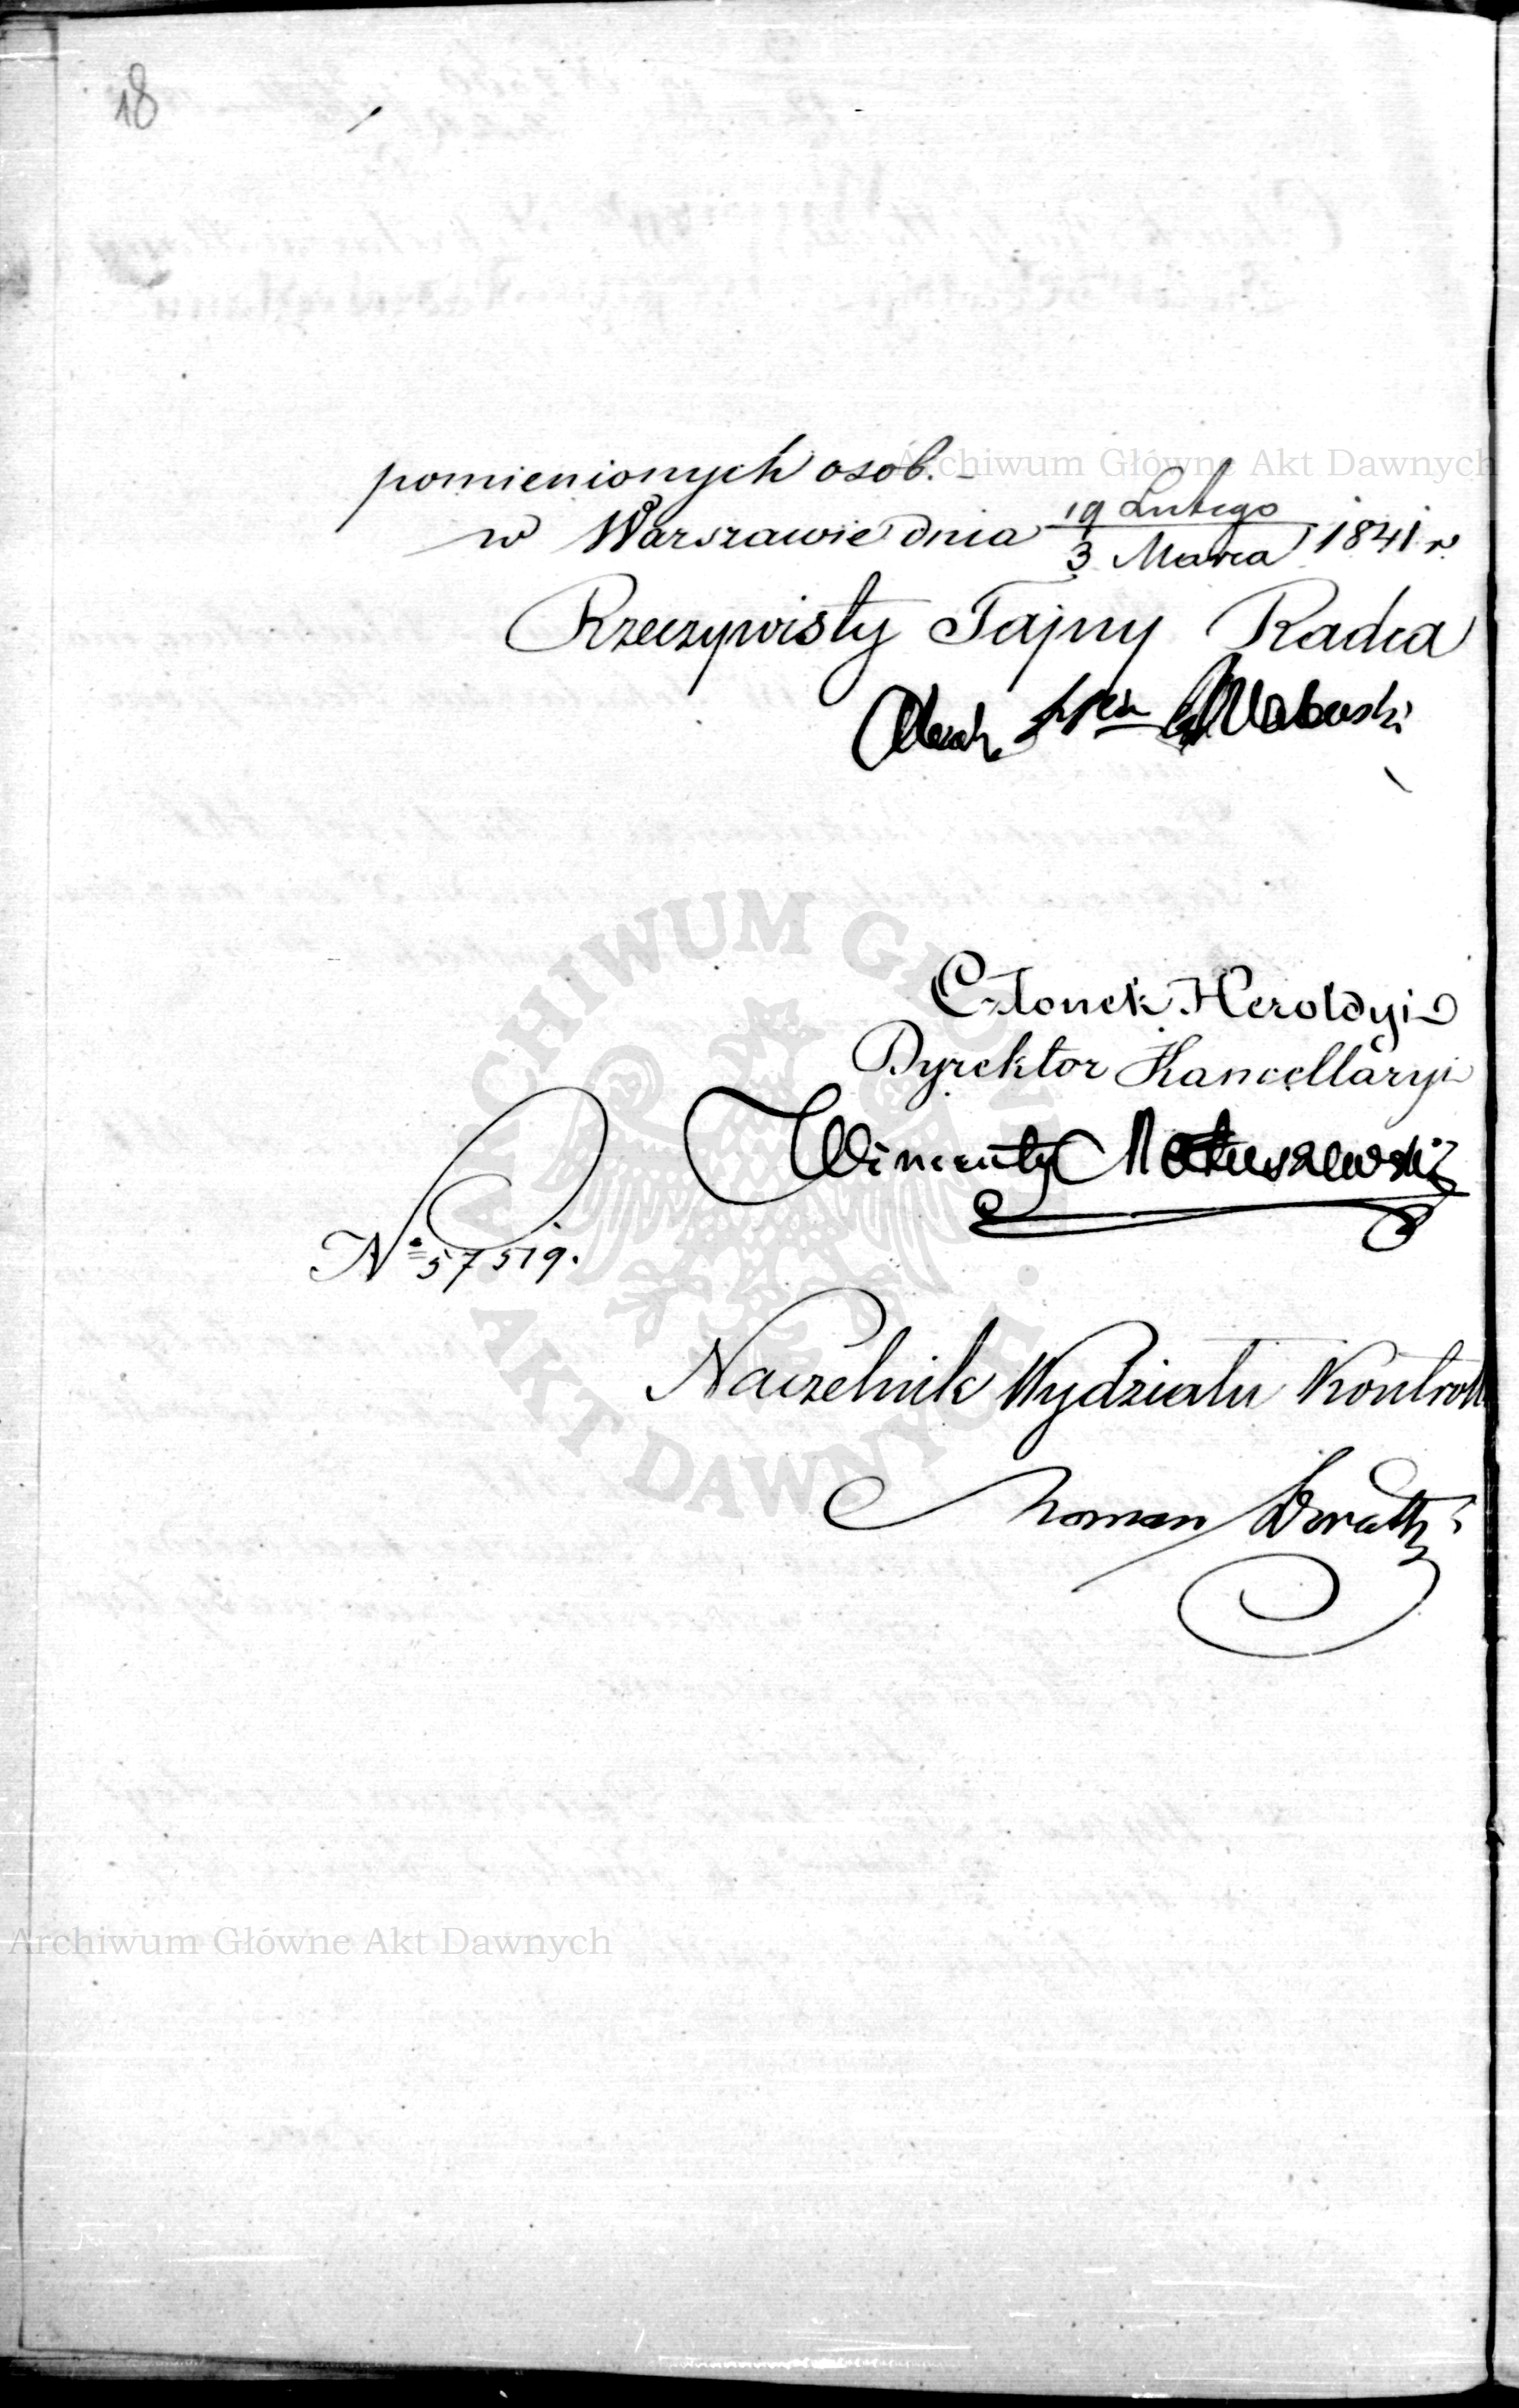 18
pomienionych osob. -
w Warszawie dnia 19 Lutego / 3 Marca 1841 r
Rzeczywisty Tajny Radca
Członek Heroldyi
Dyrektor Kancellaryi
Wincenty Matuszewski
No 57519.
Naczelnik Wydziału Kontroll
Roman
Archiwum Główne Akt Dawnych
ARCHIWUM GŁÓWNE AKT DAWNYCH
Archiwum Główne Akt Dawnych